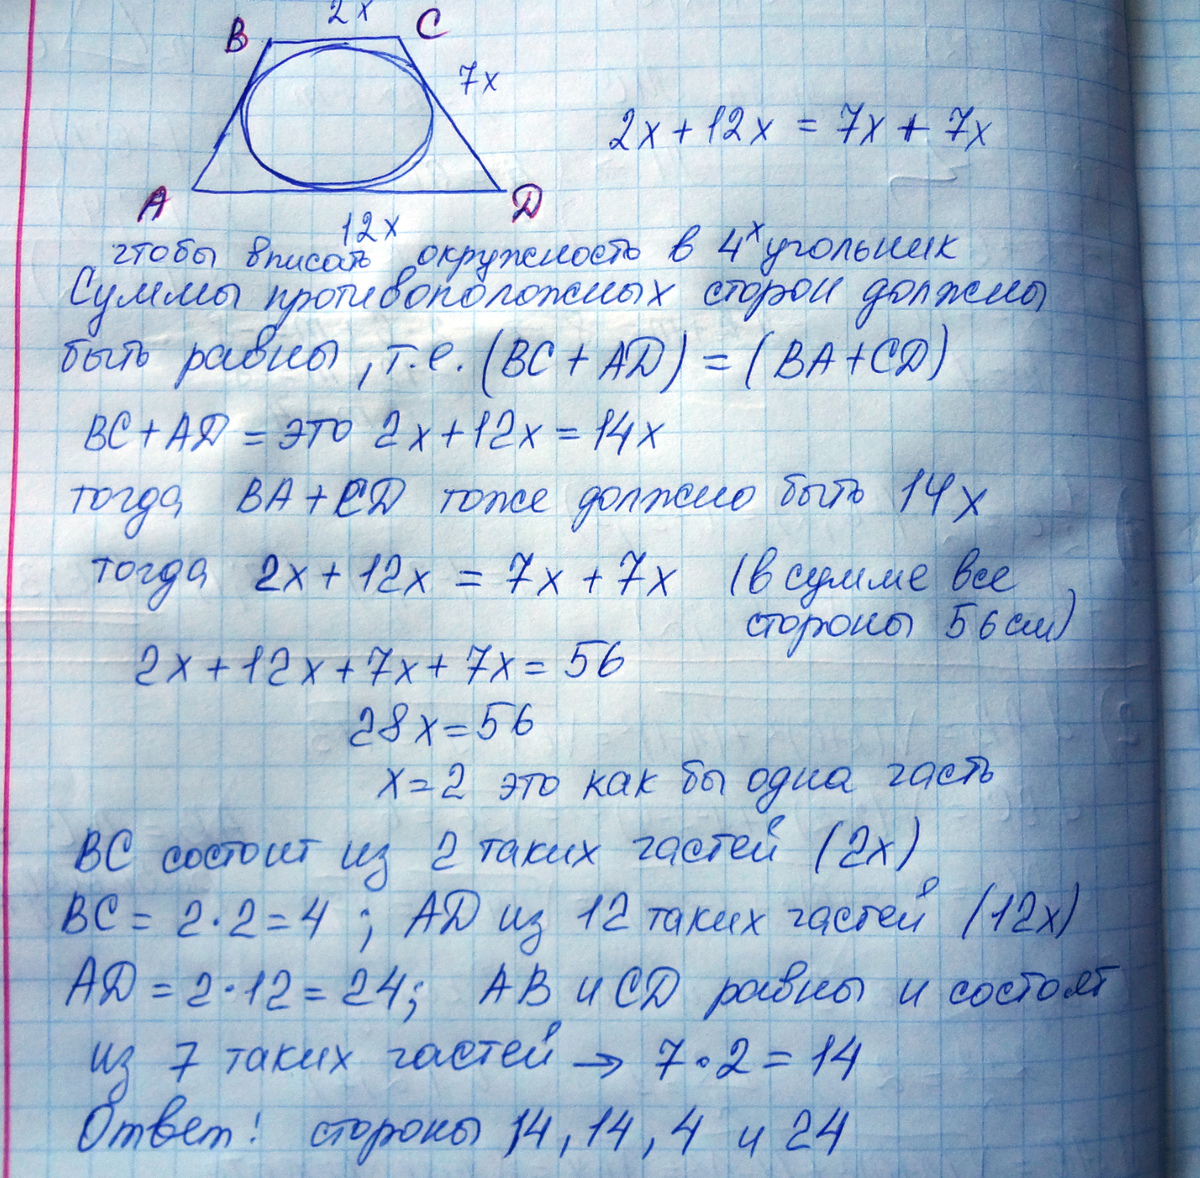 2x
B
C
7x
2x + 12x = 7x + 7x
A
D
12x
чтобы вписать окружность в 4ˣугольник
Суммы противоположных сторон должны
быть равны, т.е. (BC + AD) = (BA + CD)
BC + AD = это 2x + 12x = 14x
тогда BA + CD тоже должно быть 14x
тогда 2x + 12x = 7x + 7x (в сумме все
стороны 56 см)
2x + 12x + 7x + 7x = 56
28x = 56
x = 2 это как бы одна часть
BC состоит из 2 таких частей (2x)
BC = 2 · 2 = 4 ; AD из 12 таких частей (12x)
AD = 2 · 12 = 24; AB и CD равны и состоят
из 7 таких частей → 7 · 2 = 14
Ответ! стороны 14, 14, 4 и 24